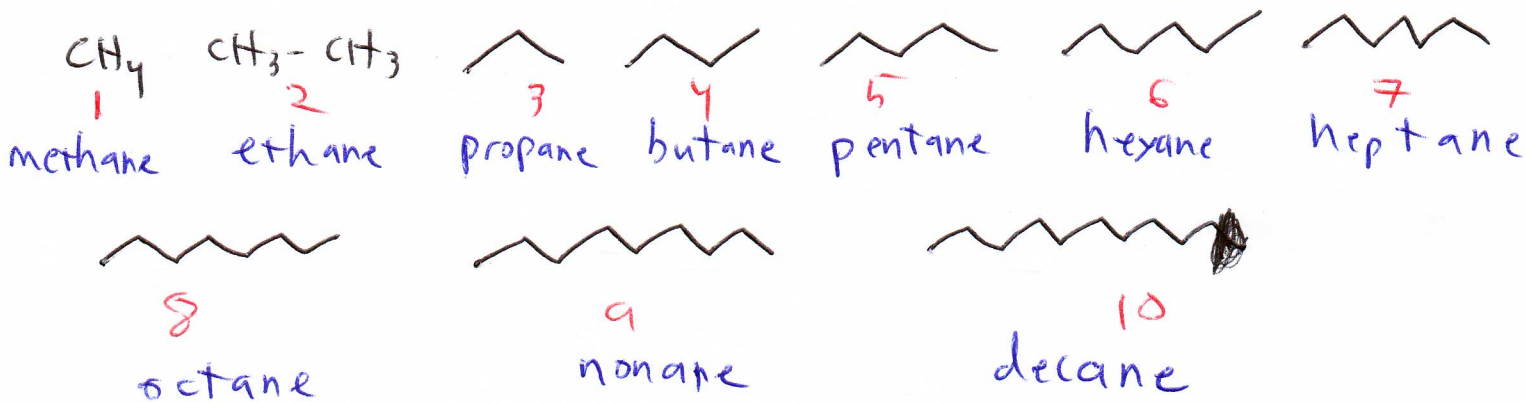 CH4 CH3-CH3
1 2 3 4 5 6 7
methane ethane propane butane pentane hexane heptane
8 9 10
octane nonane decane